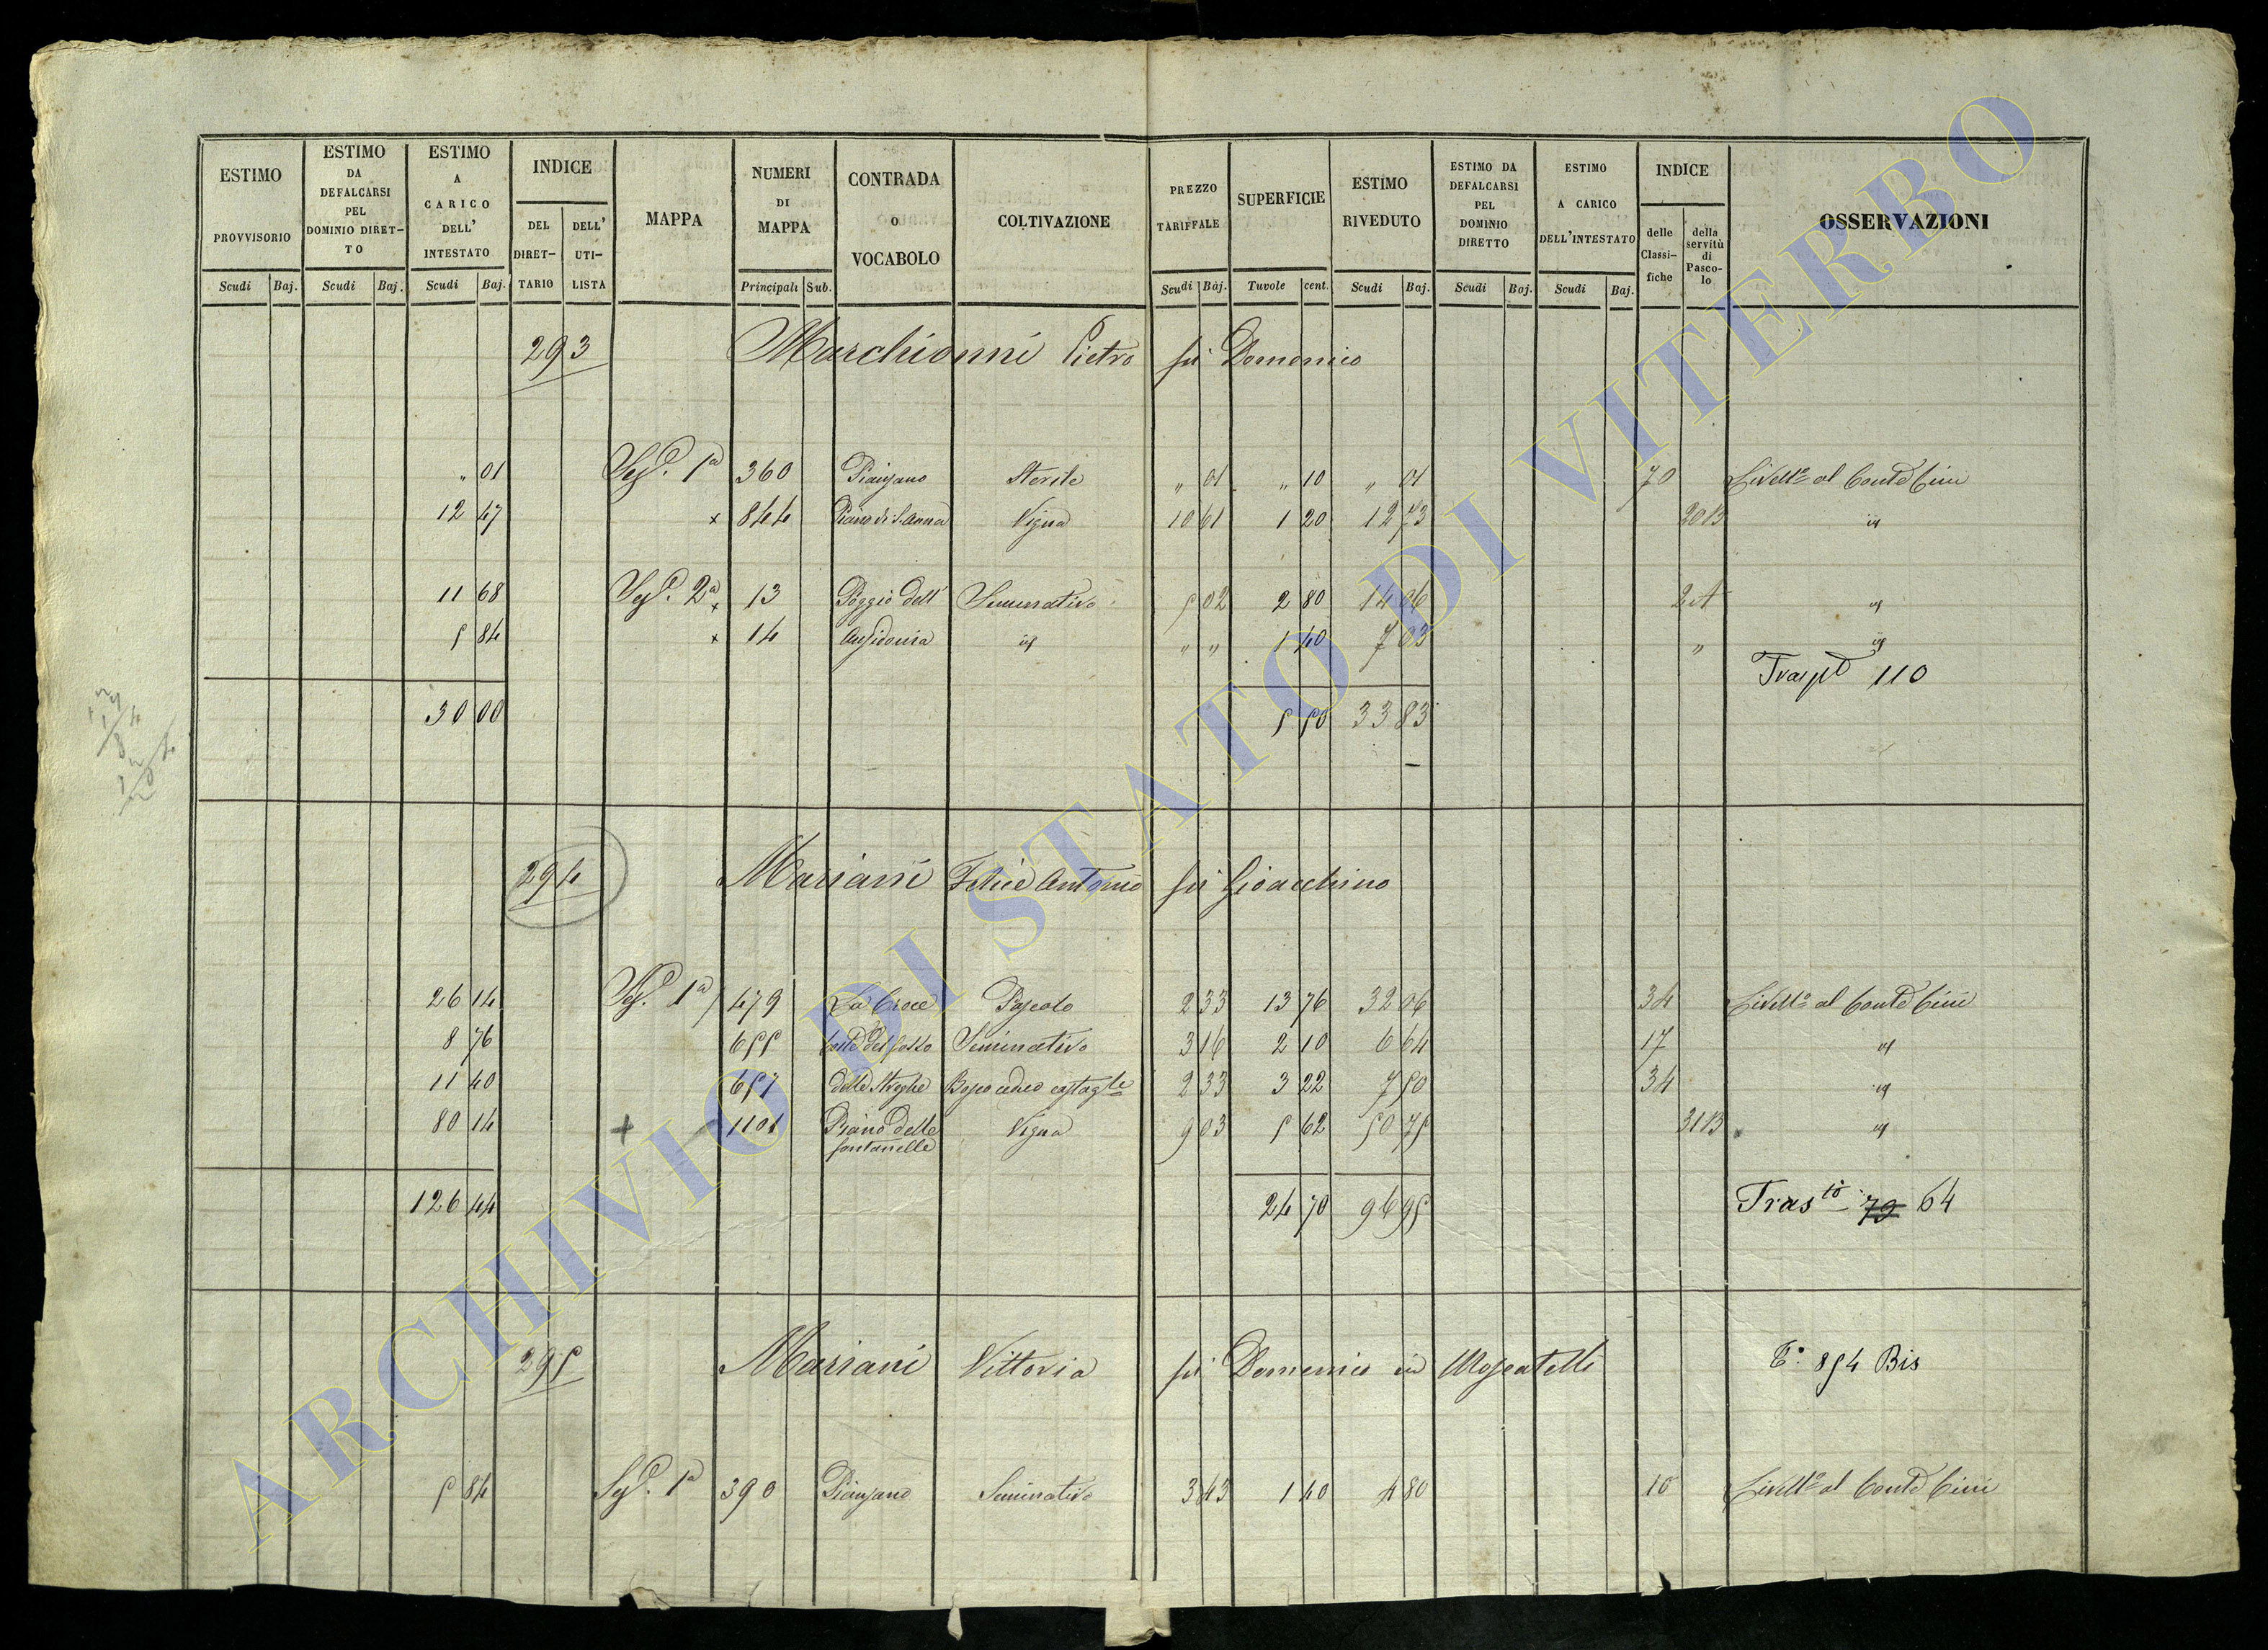 ESTIMO PROVVISORIO
ESTIMO DA DEFALCARSI PEL DOMINIO DIRET-TO
ESTIMO A CARICO DELL' INTESTATO
INDICE
DEL DIRET-TARIO
DELL' UTI-LISTA
MAPPA
NUMERI DI MAPPA
CONTRADA o VOCABOLO
COLTIVAZIONE
PREZZO TARIFFALE
SUPERFICIE
ESTIMO RIVEDUTO
ESTIMO DA DEFALCARSI PEL DOMINIO DIRETTO
ESTIMO A CARICO DELL'INTESTATO
INDICE
delle Classi-fiche
della servitù di Pasco-lo
OSSERVAZIONI
Scudi Baj. Scudi Baj. Scudi Baj. Principali Sub. Scudi Baj. Tavole cent. Scudi Baj. Scudi Baj. Scudi Baj.
293 Marchionni Pietro fu Domenico
" 01 Sez. 1a 360 Pianzano Sterile " 01 " 10 " 01 70 Livello al Conte Cini
12 47 x 844 Piano di S. Anna Vigna 10 61 1 20 12 73 20B id
11 68 Sez. 2a x 13 Poggio dell' Seminativo 5 02 2 80 14 06 2A id
5 84 x 14 Ansidonia id " " 1 40 7 03 " id
Trasto 110
30 00 5 50 33 83
294 Mariani Felice Antonio fu Gioacchino
26 14 Sez. 1a 479 La Croce Pascolo 2 33 13 76 32 06 34 Livello al Conte Cini
8 76 655 Coste del fosso Seminativo 3 16 2 10 6 64 17 id
11 40 657 delle Streghe Bosco ceduo castagle 2 33 3 22 7 50 34 id
80 14 + 1101 Piano delle Vigna 9 03 5 62 50 75 31B id
fontanelle
126 44 24 70 96 95 Trasto 79 64
295 Mariani Vittoria fu Domenico in Moscatelli To 854 Bis
5 84 Sez. 1a 390 Pianzano Seminativo 3 43 1 40 4 80 10 Livello al Conte Cini
ARCHIVIO DI STATO DI VITERBO